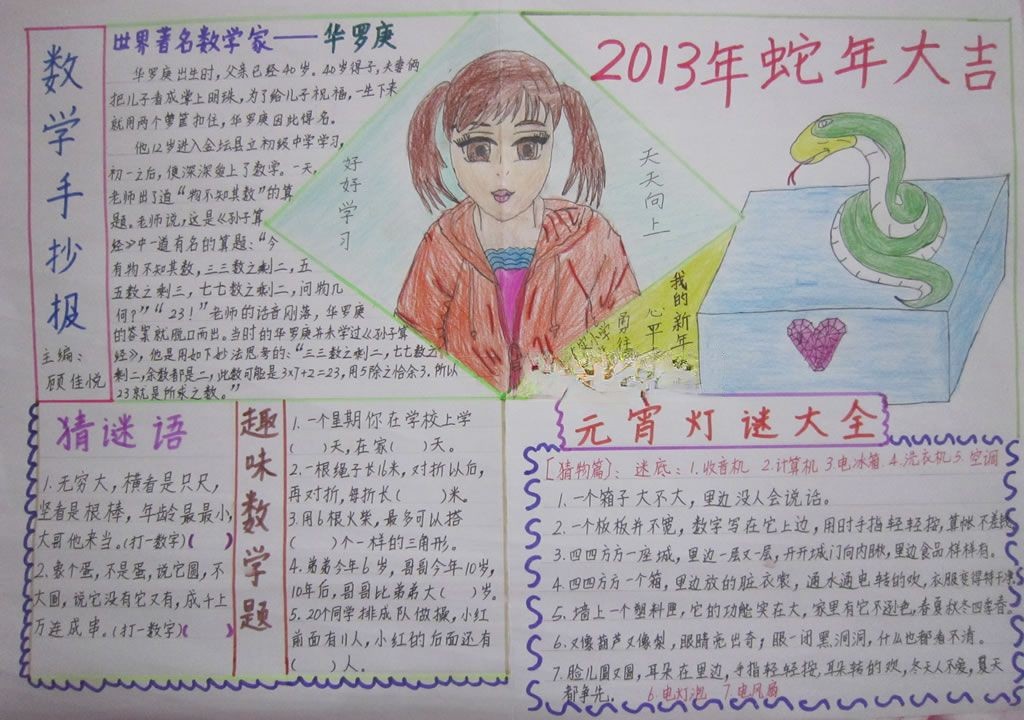 数学手抄报
主编：
顾佳悦
世界著名数学家——华罗庚
华罗庚出生时，父亲已经40岁。40岁得子，夫妻俩
把儿子看成掌上明珠，为了给儿子祝福，一生下来
就用两个箩筐扣住，华罗庚因此得名。
他12岁进入金坛县立初级中学学习，
初一之后，便深深爱上了数学。一天，
老师出了道“物不知其数”的算
题。老师说，这是《孙子算
经》中一道有名的算题：“今
有物不知其数，三三数之剩二，五
五数之剩三，七七数之剩二，问物几
何？”“23！”老师的话音刚落，华罗庚
的答案就脱口而出。当时的华罗庚并未学过《孙子算
经》，他是用如下妙法思考的：“三三数之剩二，七七数之
剩二，余数都是二，此数可能是3×7+2=23，用5除之恰余3，所以
23就是所求之数。”
好好学习
天天向上
我的新年
心平
勇往
小学
2013年蛇年大吉
猜谜语
1.无穷大，横看是只尺，
竖看是根棒，年龄最最小，
大哥他来当。(打一数字)(  )
2.象个蛋，不是蛋，说它圆，不
大圆，说它没有它又有，成千上
万连成串。(打一数字)(  )
趣味数学题
1.一个星期你在学校上学
(  )天，在家(  )天。
2.一根绳子长16米，对折以后，
再对折，每折长(  )米。
3.用6根火柴，最多可以搭
(  )个一样的三角形。
4.弟弟今年6岁，哥哥今年10岁，
10年后，哥哥比弟弟大(  )岁。
5.20个同学排成队做操，小红
前面有11人，小红的后面还有
(  )人。
元宵灯谜大全
[猜物篇]：迷底：1.收音机 2.计算机 3.电冰箱 4.洗衣机 5.空调
1.一个箱子大不大，里边没人会说话。
2.一个板板并不宽，数字写在它上边，用时手指轻轻按，算帐不差
3.四四方方一座城，里边一层又一层，开开城门向内瞅，里边食品样样有。
4.四四方方一个箱，里边放的脏衣裳，通水通电转的欢，衣服变得特干净
5.墙上一个塑料匣，它的功能实在大，家里有它不逊色，春夏秋冬四季春。
6.又像葫芦又像梨，眼睛亮出奇；眼一闭黑洞洞，什么也都看不清。
7.脸儿圆又圆，耳朵在里边，手指轻轻按，耳朵转的欢，冬天人不爱，夏天
都争先。 6.电灯泡 7.电风扇